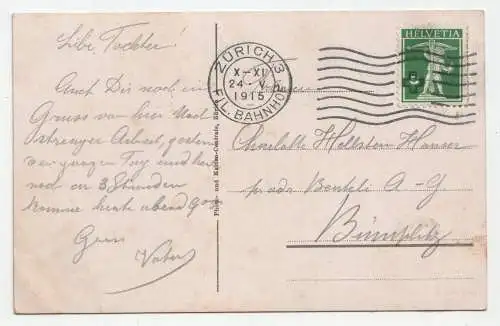 Liebe Tochter!
Auch Dir noch ein
Gruss von hier Nach
strenger Arbeit, gestern
den ganzen Tag und heute
noch 3 Stunden
komme heute abend 9
Gruss
Vater
Photo- und Karten-Centrale, Zürich
ZÜRICH 3
X-XI
24 V
1915
FIL. BAHNHOF
HELVETIA
5
Charlotte Hauser
Benteli A-G
Bümpliz